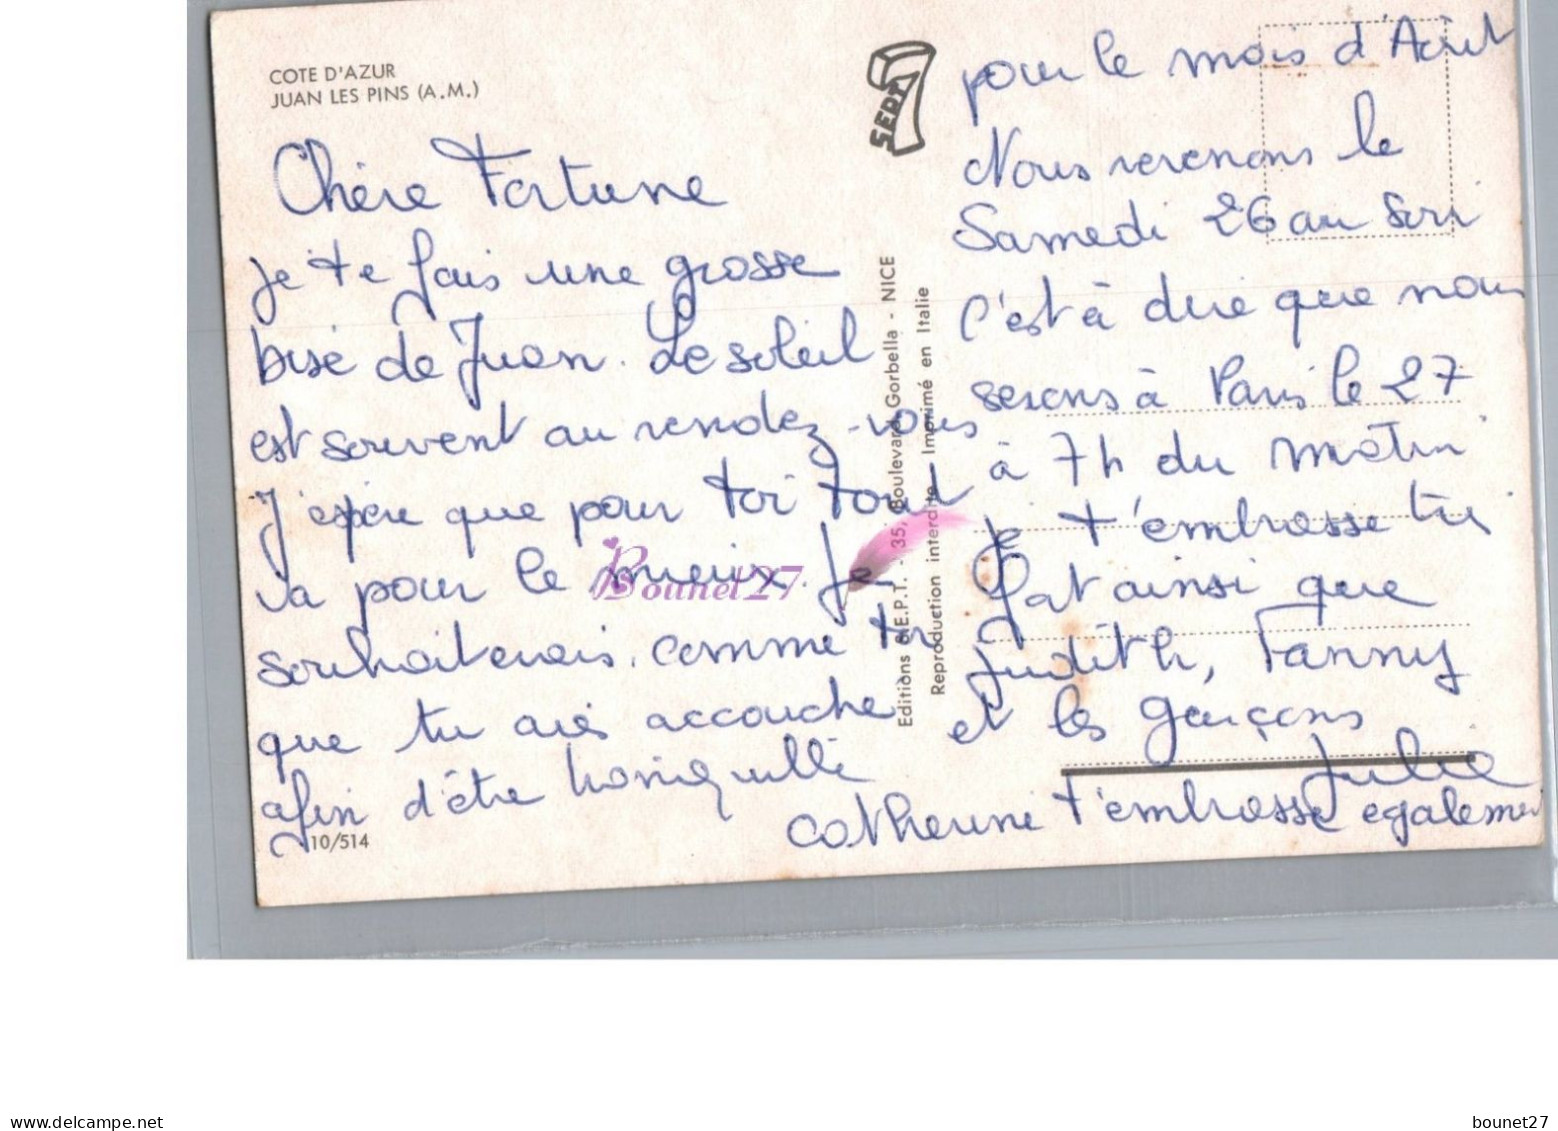 COTE D'AZUR
JUAN LES PINS (A.M.)
Chère Fortune
je te fais une grosse
bise de Juan. Le soleil
est souvent au rendez-vous
J'espère que pour toi tout
va pour le mieux. Je
souhaiterais, comme toi
que tu aies accouché
afin d'être tranquille
10/514
SEPT
Editions S.E.P.T. - 35, Boulevard Gorbella - NICE
Reproduction interdite Imprimé en Italie
pour le mois d'Août
Nous revenons le
Samedi 26 au soir
c'est à dire que nous
serons à Paris le 27
à 7h du matin
Je t'embrasse très
fort ainsi que
Judith, Fanny
et les garçons
Julie
Catherine t'embrasse egalement
Bounet27
delcampe.net
bounet27